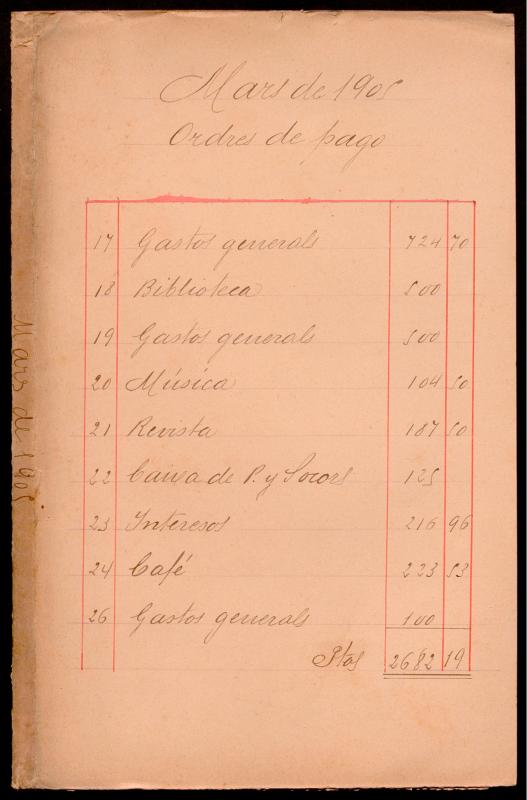 Mars de 1905
Ordres de pago
17 Gastos generals 724 70
18 Biblioteca 500
19 Gastos generals 500
20 Música 104 50
21 Revista 187 50
22 Caixa de P. y Socors 125
23 Interesos 216 96
24 Café 223 53
26 Gastos generals 100
Ptas 2682 19
Mars de 1905